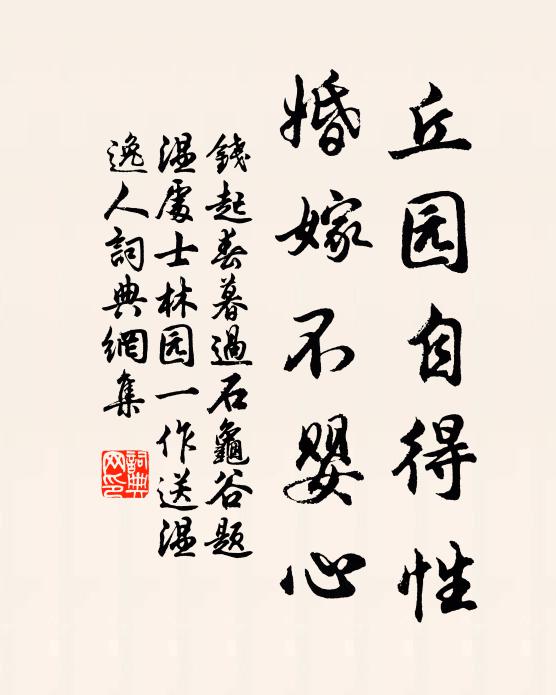 丘园自得性
婚嫁不婴心
錢起春暮過石龜谷題
温處士林园一作送温
逸人詞典網集
詞典
网印